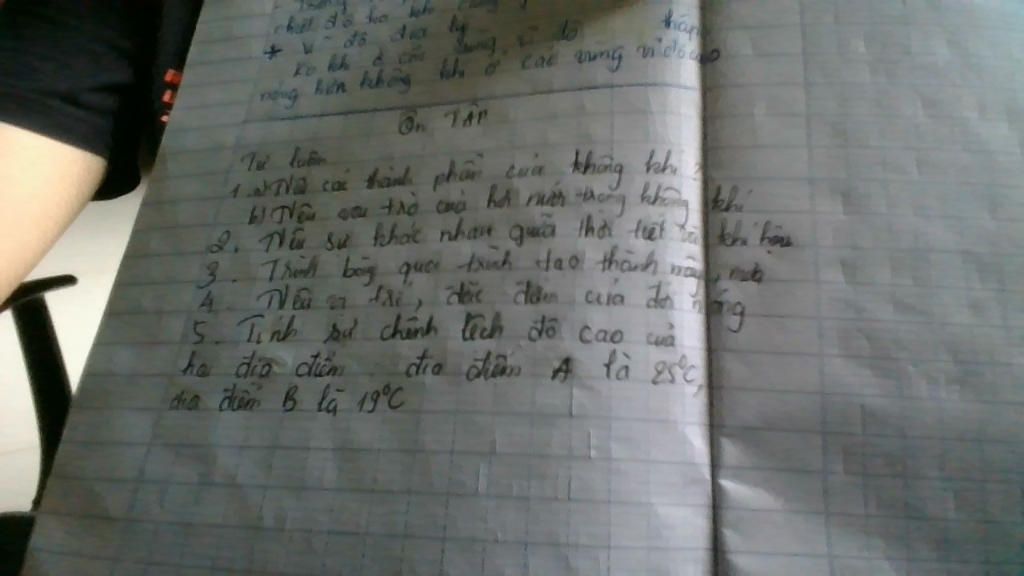 nhiệt độ
* Vĩ độ địa lý
không khí ở các vùng vĩ độ thấp
nóng hơn không khí ở các vùng vĩ độ cao
Ôn TẬP
Tự luận
1. a) Nêu các thành phần của không khí ?
b) Nêu vai trò của hơi nước trong không khí
2. Nêu sự khác nhau giữa thời tiết và khí hậu
3. Trình bày quá trình tạo thành mây, mưa
4. Nêu vị trí, đặc điểm của đới nóng
5. Tính sự chênh lệch độ cao của
hai địa điểm địa điểm A là 25°C,
địa điểm B là 19°C